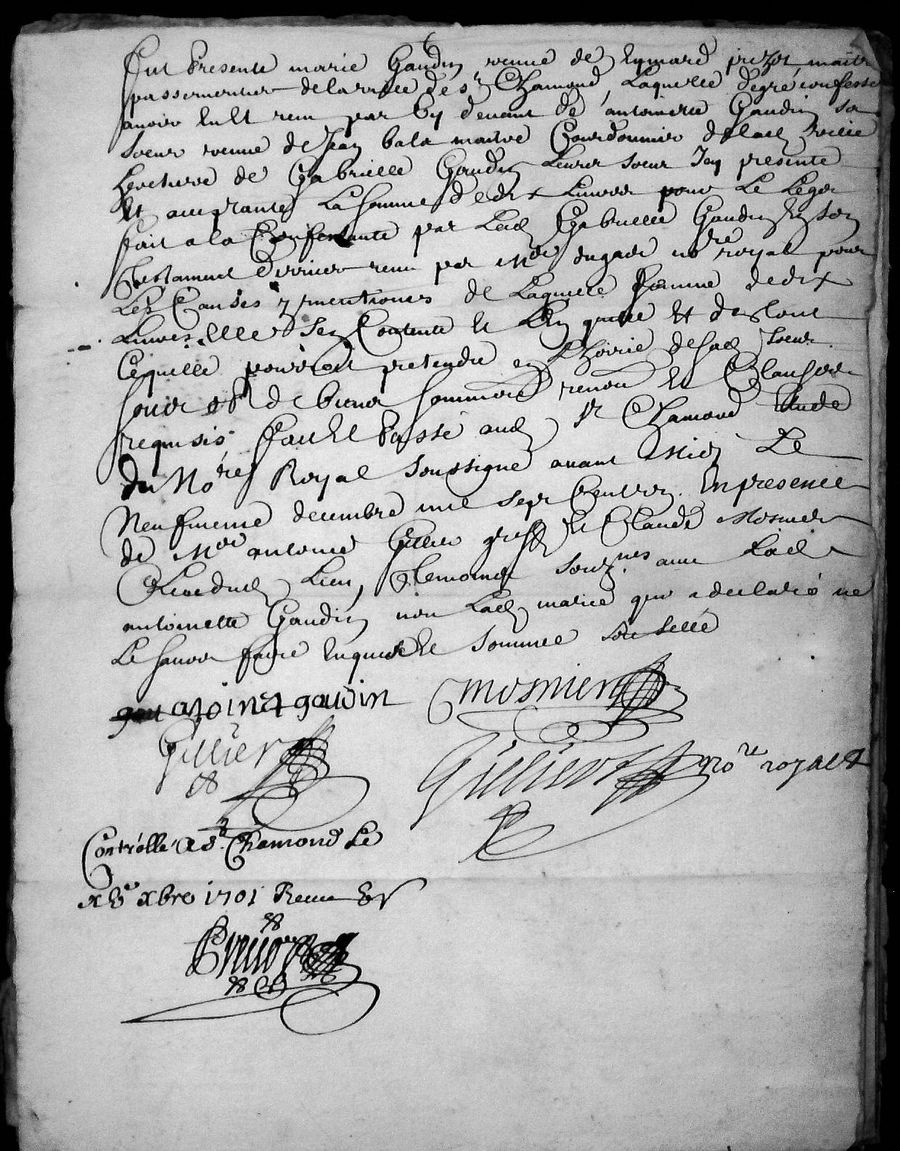 fut presente marie Gaudin veuve de Eymard prizot maitre
passementier de la ville de st Chamond, Laquelle degré confesse
avoir eu et receu par cy devant de antoinette Gaudin sa
soeur veuve de Jean bala maitre Courdonnier de lad ville
heritiere de Gabrielle Gaudin Leurs soeur Icy presente
Et aceptante La somme de dix Livres pour Le Legat
fait a la Confessante par Lad Gabrielle Gaudin en son
testament dernier receu par Mre dugade nore royal pour
Les Causes y mentiones de Laquelle somme de dix
Livres elle sen Contente et En quitte Et de tout
Ce quelle pourroit pretendre en Lhoirie de sad soeur
requises fait Et Passé aud st Chamond Etude
du Nore Royal soussigné avant Midi Le
Neufvieme decembre mil sept Cent un En presence
de Mre antoine Gillier greff et Claude Mosnier
Clerc dud Lieu, temoings souzsnes avec Lad
antoinette Gaudin non Lad marie qui a declaré ne
Le scavoir faire Enquise et sommée
atoinet gaudin Mosnier
Gillier Gillier nore royal
Controllé a st Chamond Le
xbre 1701 Receu